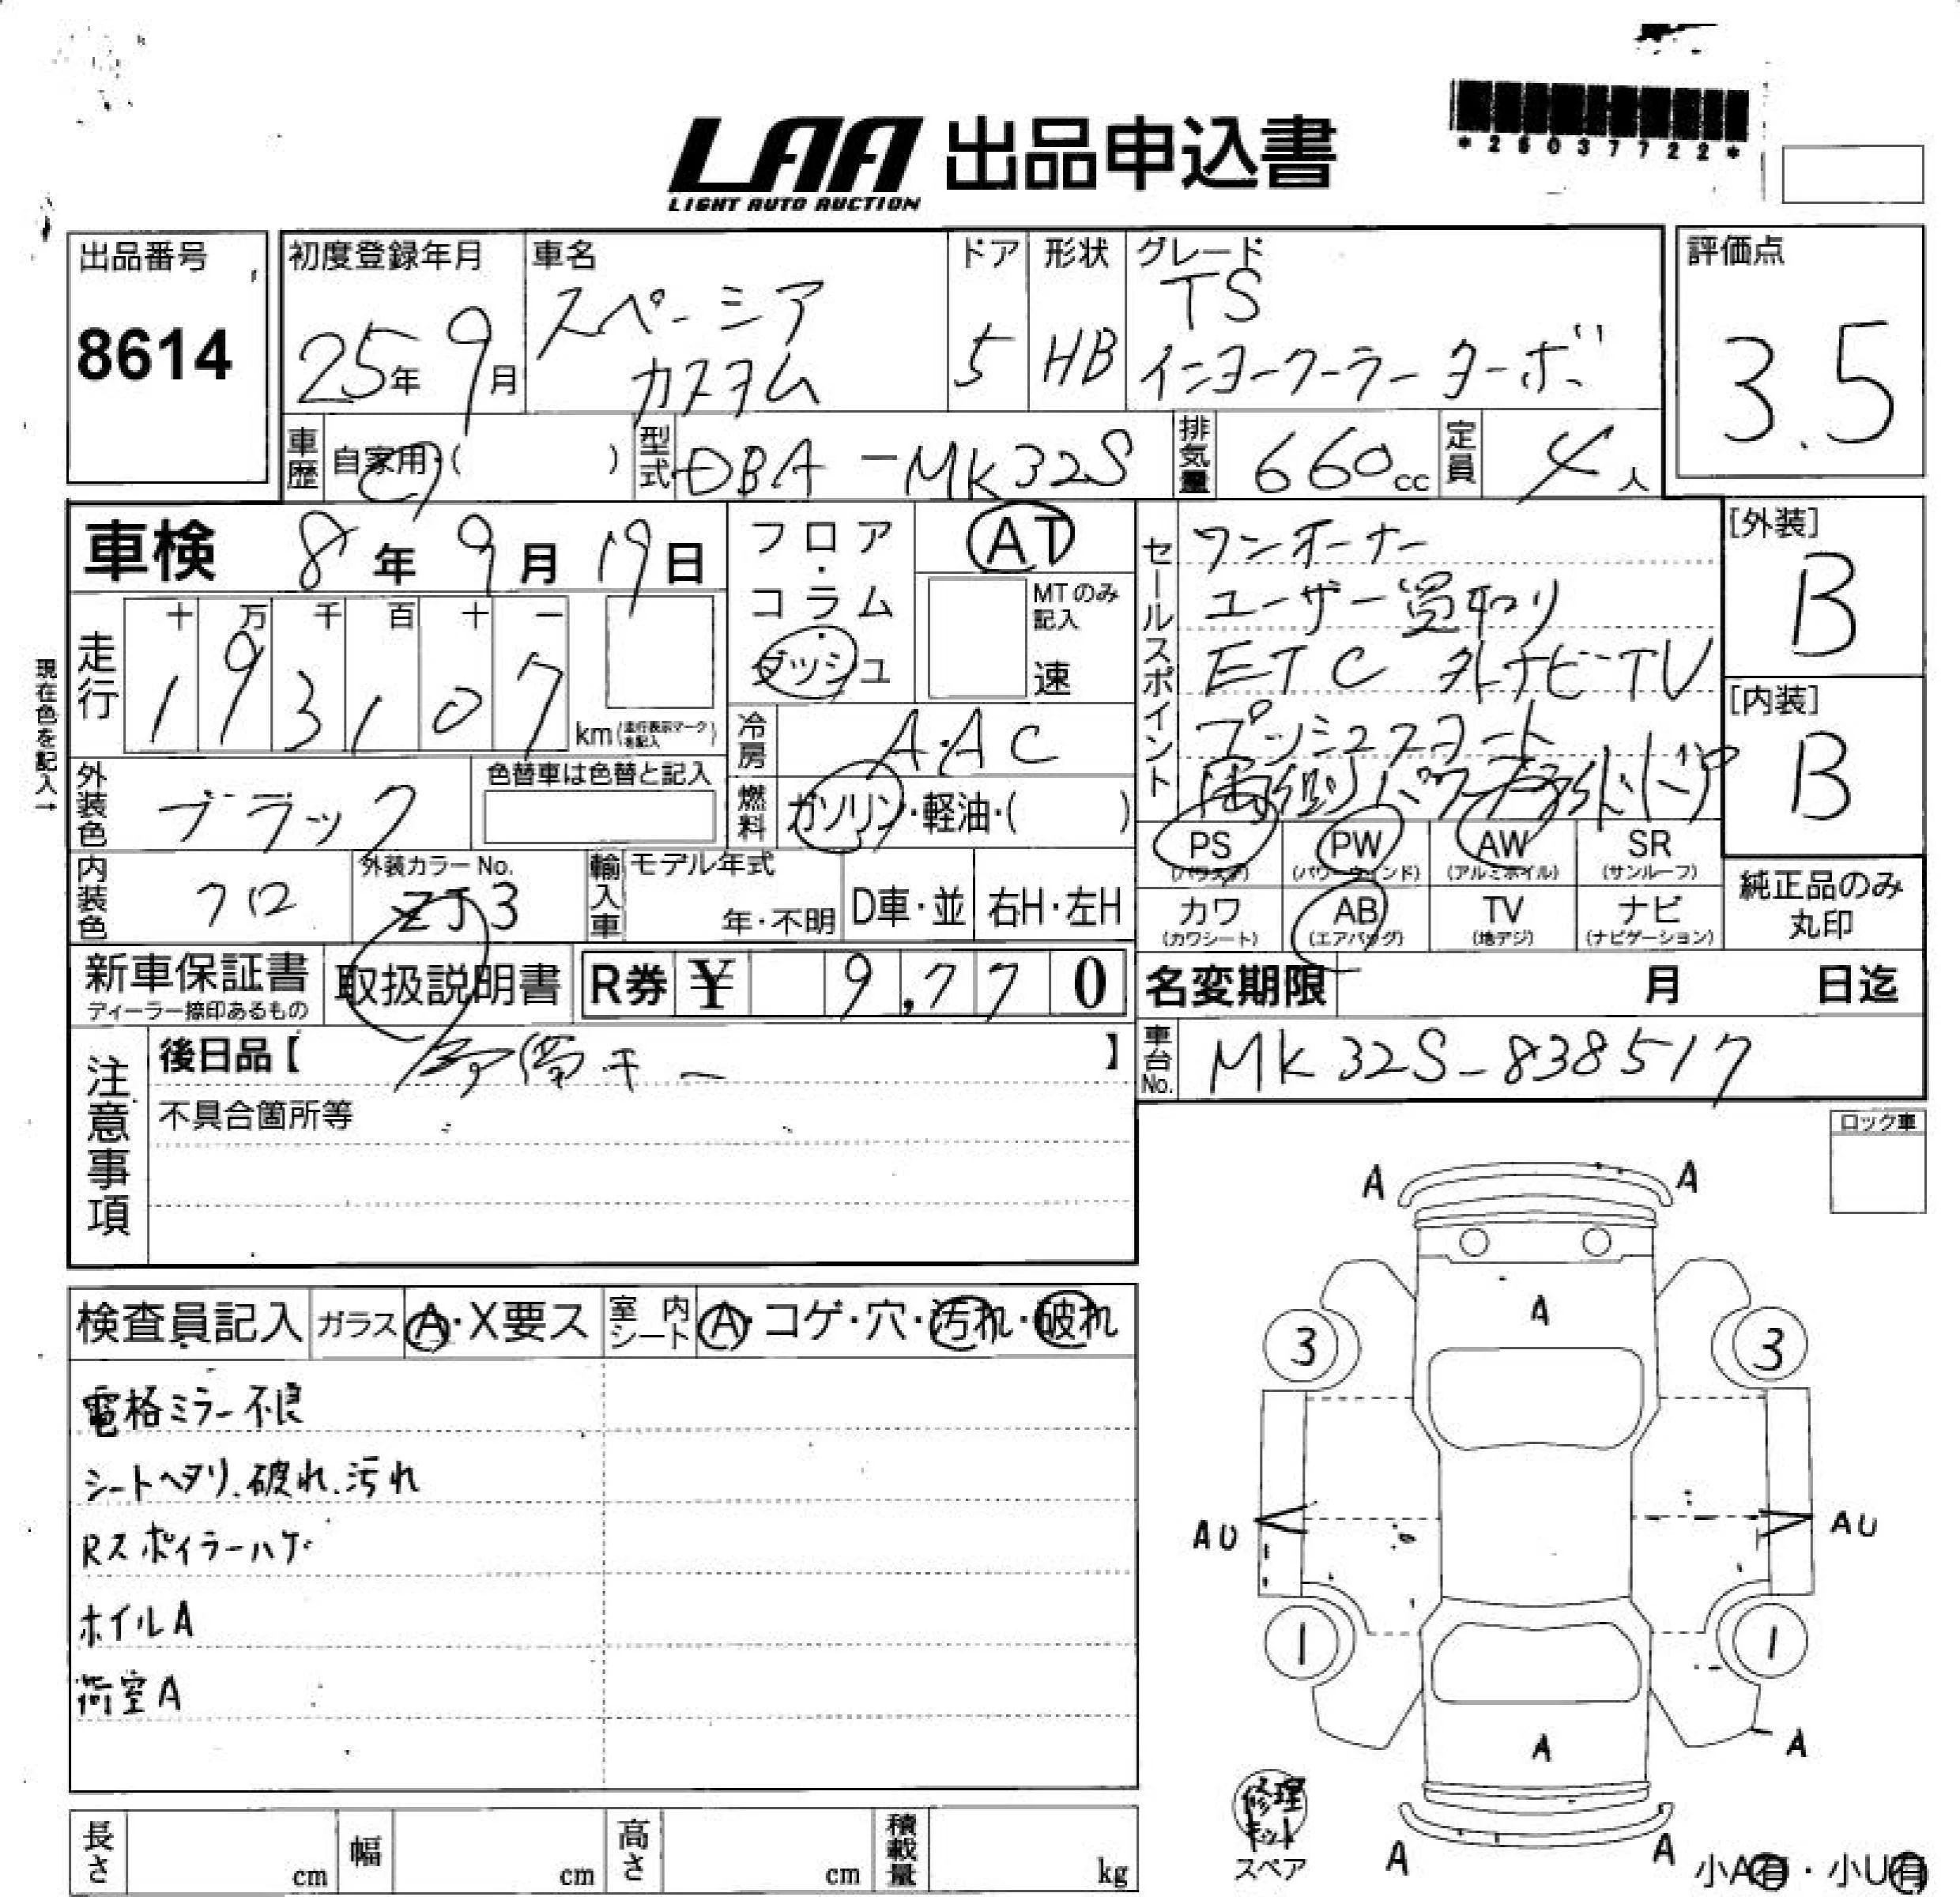 LAA 出品申込書
LIGHT AUTO AUCTION
*26037722*
出品番号
8614
初度登録年月
25年9月
車名
スペーシア
カスタム
ドア
5
形状
HB
グレード
TS
インタークーラーターボ
評価点
3.5
車歴
自家用・( )
型式
DBA-MK32S
排気量
660cc
定員
4人
車検 8年9月19日
フロア・コラム・ダッシュ
AT
MTのみ記入
速
セールスポイント
ワンオーナー
ユーザー買取り
ETC 外ナビ-TV
プッシュスタート
両側パワースライドドア
[外装]
B
[内装]
B
現在色を記入→
走行
十 万 千 百 十 一
193,107
km(走行表示マークを記入)
冷房
A・AC
外装色
ブラック
色替車は色替と記入
燃料
ガソリン・軽油・( )
PS
(パワステ)
PW
(パワーウインド)
AW
(アルミホイル)
SR
(サンルーフ)
カワ
(カワシート)
AB
(エアバッグ)
TV
(地デジ)
ナビ
(ナビゲーション)
純正品のみ
丸印
内装色
クロ
外装カラーNo.
ZJ3
輸入車
モデル年式
年・不明
D車・並
右H・左H
新車保証書
ディーラー捺印あるもの
取扱説明書
R券 ¥ 9,770
名変期限 月 日迄
注意事項
後日品【 携帯キー 】
不具合箇所等
車台No.
MK32S-838517
ロック車
検査員記入
ガラス
A・X要ス
室内シート
A・コゲ・穴・汚れ・破れ
電格ミラー不良
シートヘタリ.破れ.汚れ
Rスポイラーハゲ
ホイルA
荷室A
A A
A
3 3
AU AU
1 1
A
A
修理キット
スペア
A A
小A有・小U有
長さ cm
幅 cm
高さ cm
積載量 kg